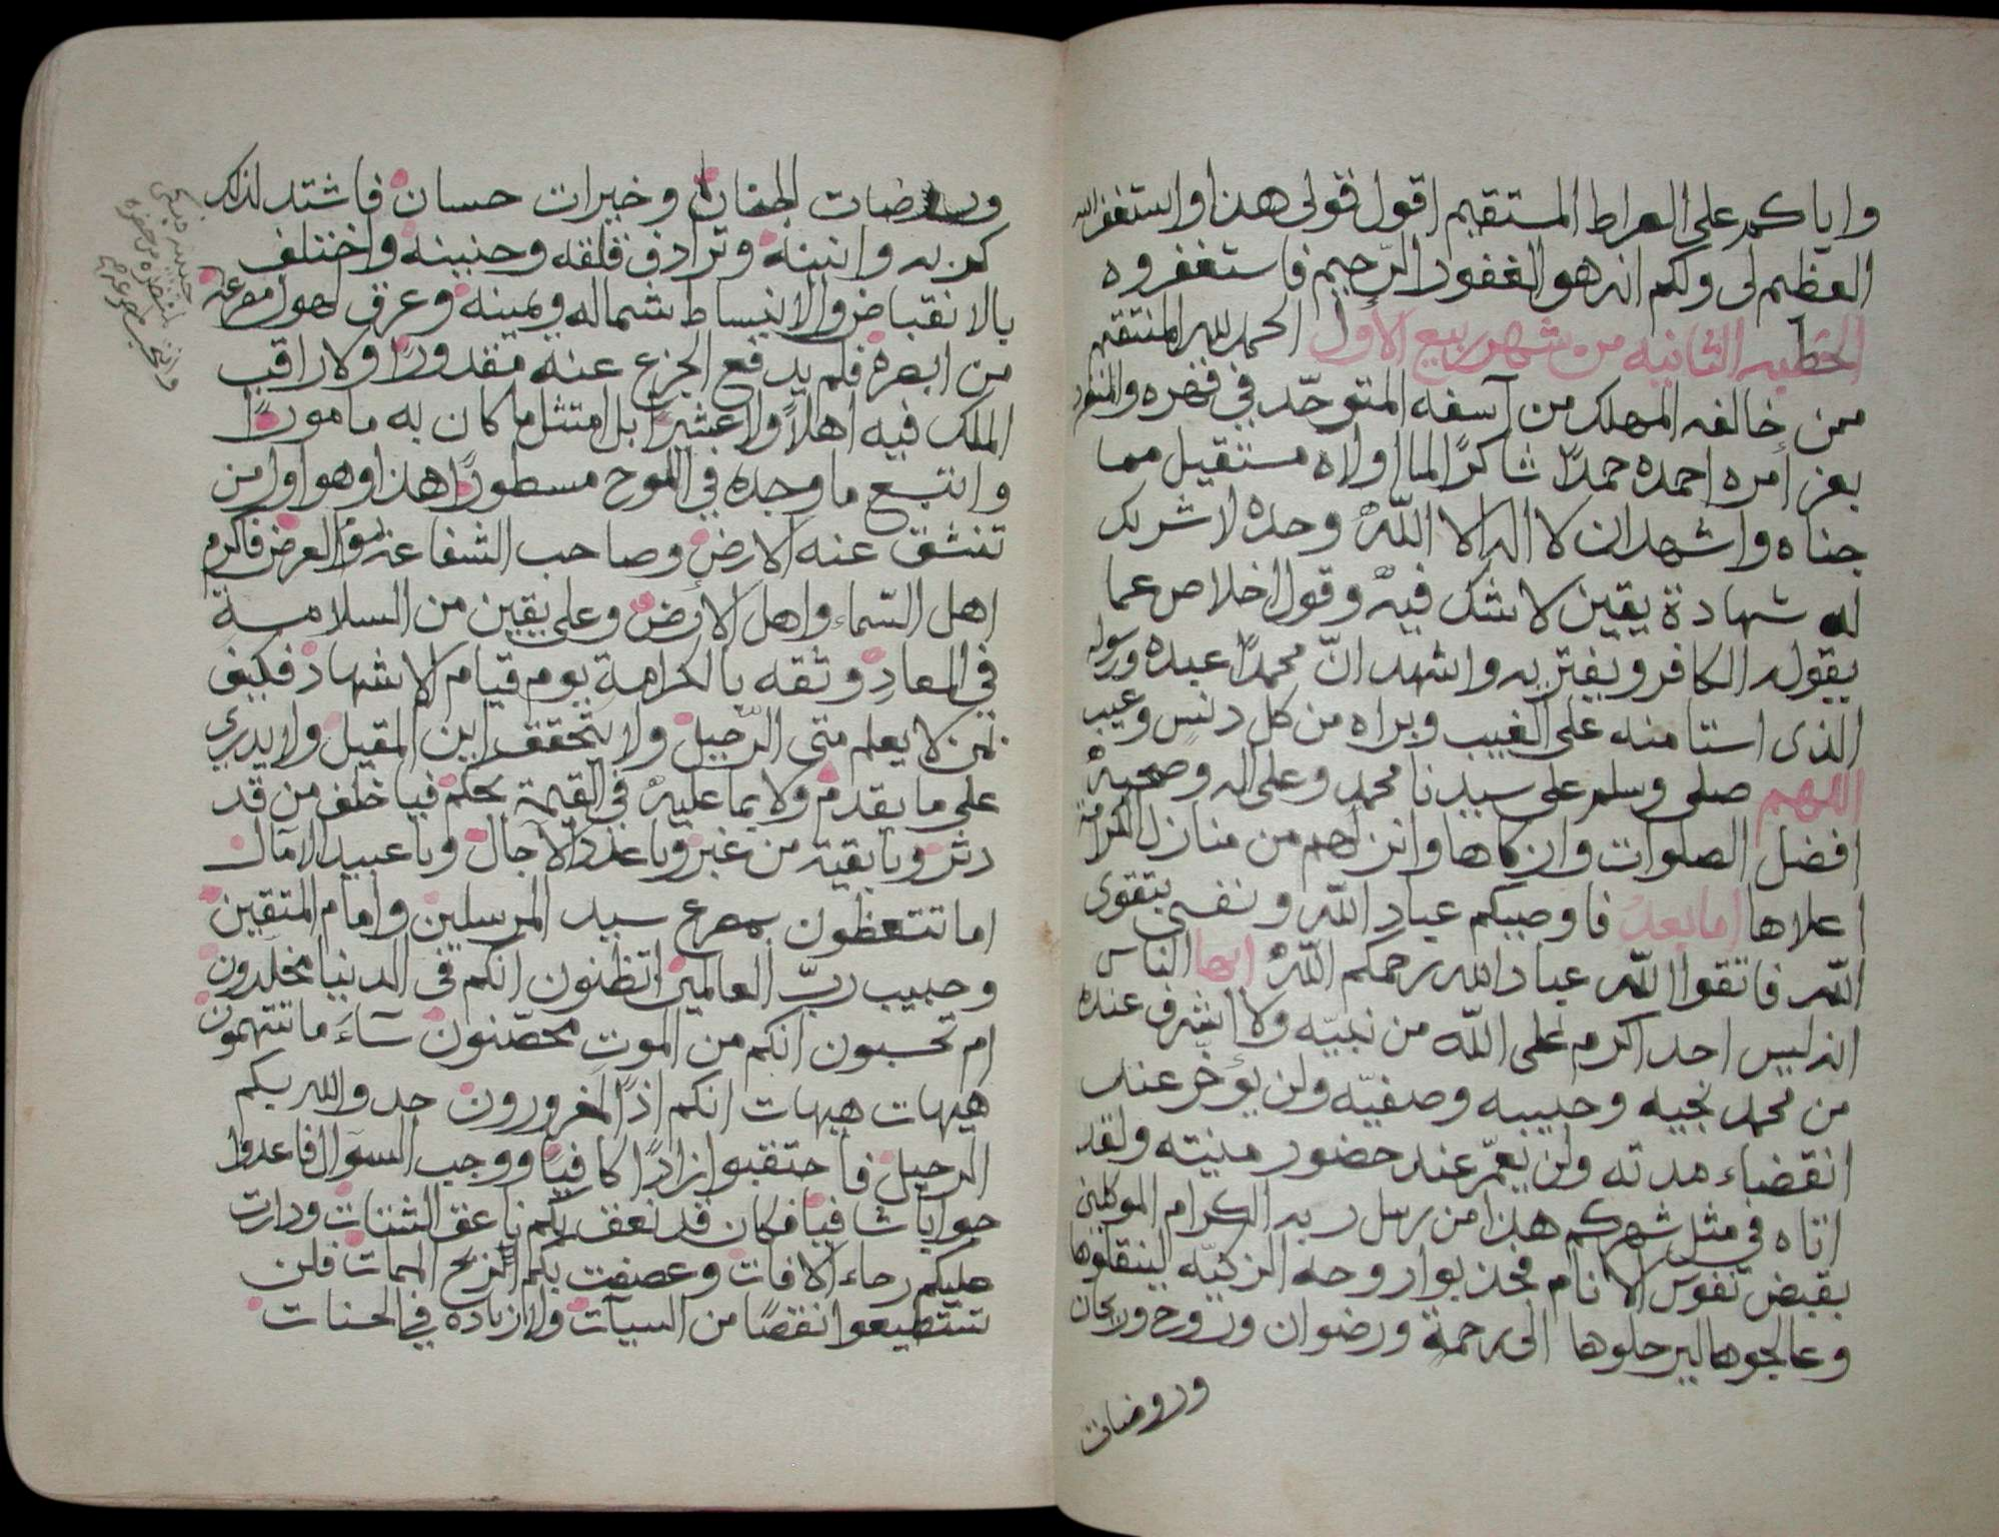 واياكم على الصراط المستقيم اقول قولى هذا واستغفر الله
العظيم لى ولكم انه هو الغفور الرّحيم فاستغفروه
الخطبه الثانيه من شهر ربيع الأول الحمد لله المنتقم
ممن خالفه المهلك من آسفه المتوحّد في قهره والمتفرد
بعز أمره احمده حمدًا شاكرًا لما اولاه مستقيل مما
جناه واشهد ان لا اله الا اللّه وحده لا شريك
له شهادة يقين لا شك فيه وقول اخلاص عما
يقوله الكافر ويفتر به واشهد انّ محمدًا عبده ورسوله
الذى استامنه على الغيب وبراه من كل دنس وعيب
اللهم صلى وسلم على سيدنا محمد وعلى اله وصحبه
افضل الصلوات وازكاها وانزلهم من منازل الكرامة
اعلاها اما بعد فاوصيكم عباد اللّه ونفسى بتقوى
اللّه فاتقوا اللّه عباد الله رحمكم اللّه ايها الناس
انه ليس احد اكرم على اللّه من نبيّه ولا اشرف عنده
من محمد نجيه وحبيبه وصفيّه ولن يؤخر عند
انقضاء مدته ولن يعمّر عند حضور منيته ولقد
اتاه في مثل شهركم هذا من رسل ربه الكرام الموكلين
بقبض نفوس الانام فجذبوا روحه الزكيّه لينقلوها
وعالجوها ليرحلوها الى رحمة ورضوان وروح وريحان
وروضات
وروضات الجنان وخيرات حسان فاشتد لذلك
كربه وانينه وترادف قلقه وحنينه واختلف
بالانقباض والانبساط شماله ويمينه وعرق لهول مصرعه
من ابصره فلم يدفع الجزع عنه مقدورًا ولا راقب
الملك فيه اهلاً ولا عشيرًا بل امتثل ما كان به مامورًا
واتبع ما وجده في اللوح مسطورًا هذا وهو اول من
تنشق عنه الارض وصاحب الشفاعه يوم العرض فاكرم
اهل السّماء واهل الأرض وعلى يقين من السلامة
في المعاد وثقه بالكرامة يوم قيام الاشهاد فكيف
بمن لا يعلم متى الرّحيل ولا يتحقق اين المقيل ولا يدري
على ما يقدم ولا بما عليه في القيمة يحكم فيا خلف من قد
دثر ويا بقية من غبر ويا عدد الآجال ويا عبيد الآمال
اما تتعظون بمصرع سيد المرسلين وامام المتقين
وحبيب ربّ العالمين اتظنون انكم في الدنيا مخلدون
ام تحسبون انكم من الموت محصّنون سآءَ ما تتهمون
هيهات هيهات انكم اذًا لمغرورون جد والله بكم
الرحيل فاحتقبوا زادًا كافيًا ووجب السوال فاعدوا
جوابا شافيًا فكان قد نعق بكم ناعق الشتات ودارت
عليكم رحاء الافات وعصفت بكم الريح الممات فلن
تستطيعوا نقصًا من السيآت ولا زيادة في الحسنات